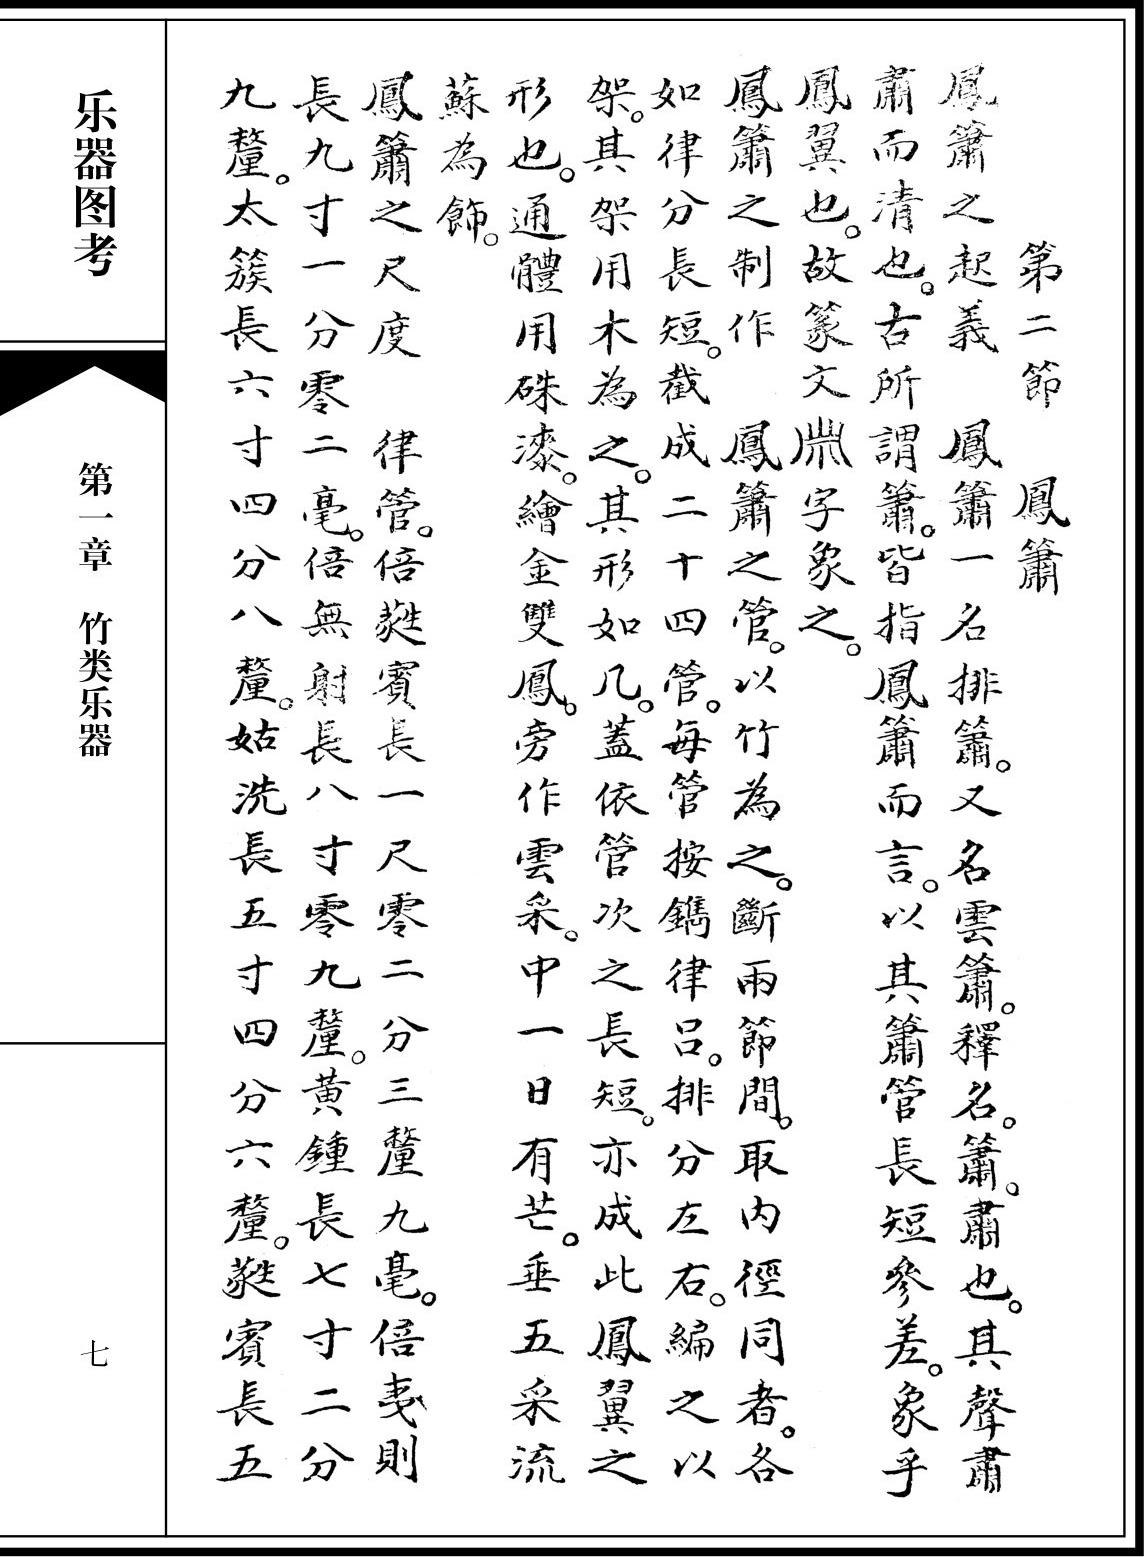 第二節　鳳簫
鳳簫之起義　鳳簫一名排簫。又名雲簫。釋名。簫。肅也。其聲肅
肅而清也。古所謂簫。皆指鳳簫而言。以其簫管長短參差。象乎
鳳翼也。故篆文字象之。
鳳簫之制作　鳳簫之管。以竹為之。斷兩節間。取內徑同者。各
如律分長短。截成二十四管。每管按鐫律呂。排分左右。編之以
架。其架用木為之。其形如几。蓋依管次之長短。亦成此鳳翼之
形也。通體用硃漆。繪金雙鳳。旁作雲采。中一日有芒。垂五采流
蘇為飾。
鳳簫之尺度　律管。倍蕤賓長一尺零二分三釐九毫。倍夷則
長九寸一分零二毫。倍無射長八寸零九釐。黃鍾長七寸二分
九釐。太簇長六寸四分八釐。姑洗長五寸四分六釐。蕤賓長五
乐器图考
第一章　竹类乐器
七